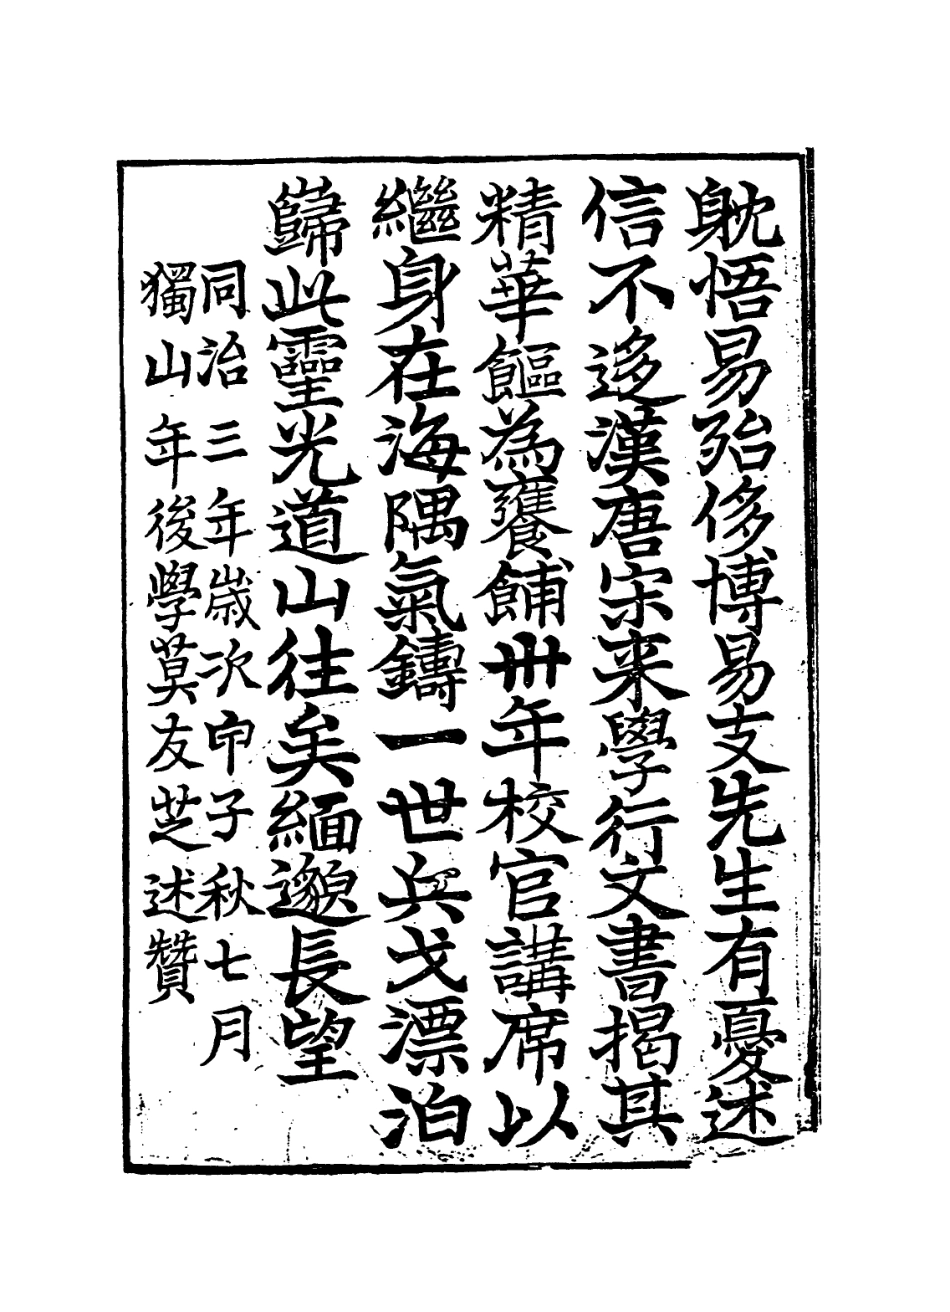 躭悟易殆侈博易支先生有憂述
信不迻漢唐宋来學行文書揭其
精華饇為饔餔卌年校官講席以
繼身在海隅氣鑄一世兵戈漂泊
歸此靈光道山往矣緬邈長望
同治三年歲次甲子秋七月
獨山年後學莫友芝述贊